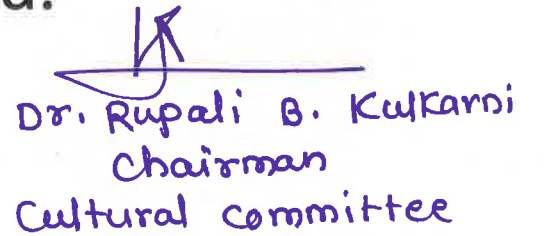 Dr. Rupali B. Kulkarni
Chairman
Cultural committee